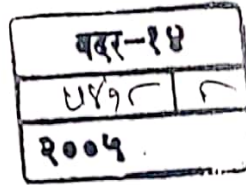 बदर-१४
५४१८ ८
२००५